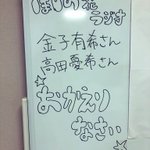 ほしの花
ラジオ
金子有希さん
高田憂希さん
☆おかえり
なさい☆